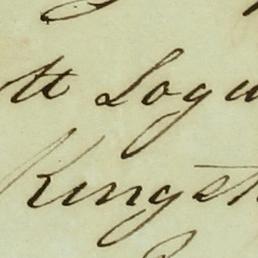 tt Logu
Kingst